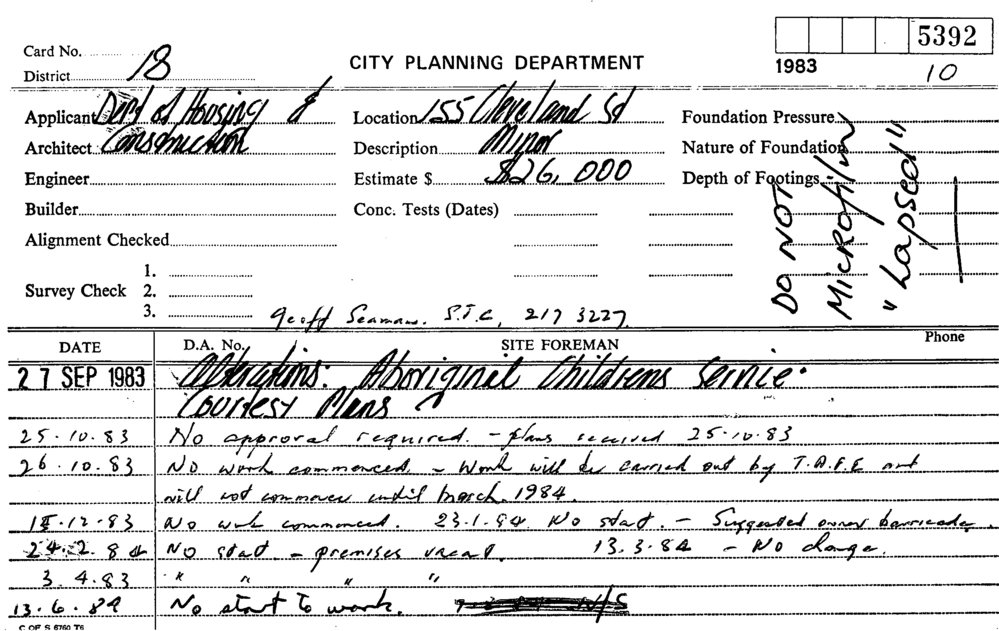 5392
Card No.
District 18
CITY PLANNING DEPARTMENT
1983 10
Applicant Dept of Housing &
Architect Construction
Engineer
Builder
Alignment Checked
Survey Check 1.
2.
3.
Location 155 Cleveland St
Description Minor
Estimate $ $26,000
Conc. Tests (Dates)
Foundation Pressure
Nature of Foundation
Depth of Footings
DO NOT
Microfilm
"Lapsed"
Geoff Seamans. S.T.C, 217 3227.
DATE D.A. No. SITE FOREMAN Phone
27 SEP 1983 Alterations: Aboriginal Childrens Service.
Courtesy Plans
25.10.83 No approval required. - plans received 25.10.83
26.10.83 No work commenced. - Work will be carried out by T.A.F.E and
will not commence until March 1984.
15.12.83 No work commenced. 23.1.84 No start. - Suggested owner barricade.
24.2.84 No start - premises vacant. 13.3.84 - No change.
3.4.83 " " " "
13.6.84 No start to work. N/S
C OF S 6760 T6